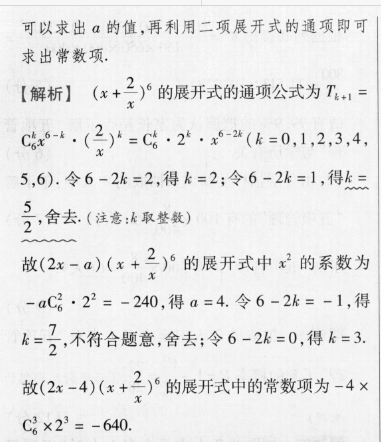 可以求出 a 的值,再利用二项展开式的通项即可
求出常数项.
【解析】 (x+2/x)^6 的展开式的通项公式为 T_{k+1} =
C_6^k x^{6-k}·(2/x)^k = C_6^k·2^k·x^{6-2k}(k=0,1,2,3,4,
5,6).令 6-2k=2,得 k=2;令 6-2k=1,得k=
5/2,舍去.(注意:k 取整数)
故(2x-a)(x+2/x)^6 的展开式中 x^2 的系数为
-aC_6^2·2^2=-240,得 a=4.令 6-2k=-1,得
k=7/2,不符合题意,舍去;令 6-2k=0,得 k=3.
故(2x-4)(x+2/x)^6 的展开式中的常数项为-4×
C_6^3×2^3=-640.